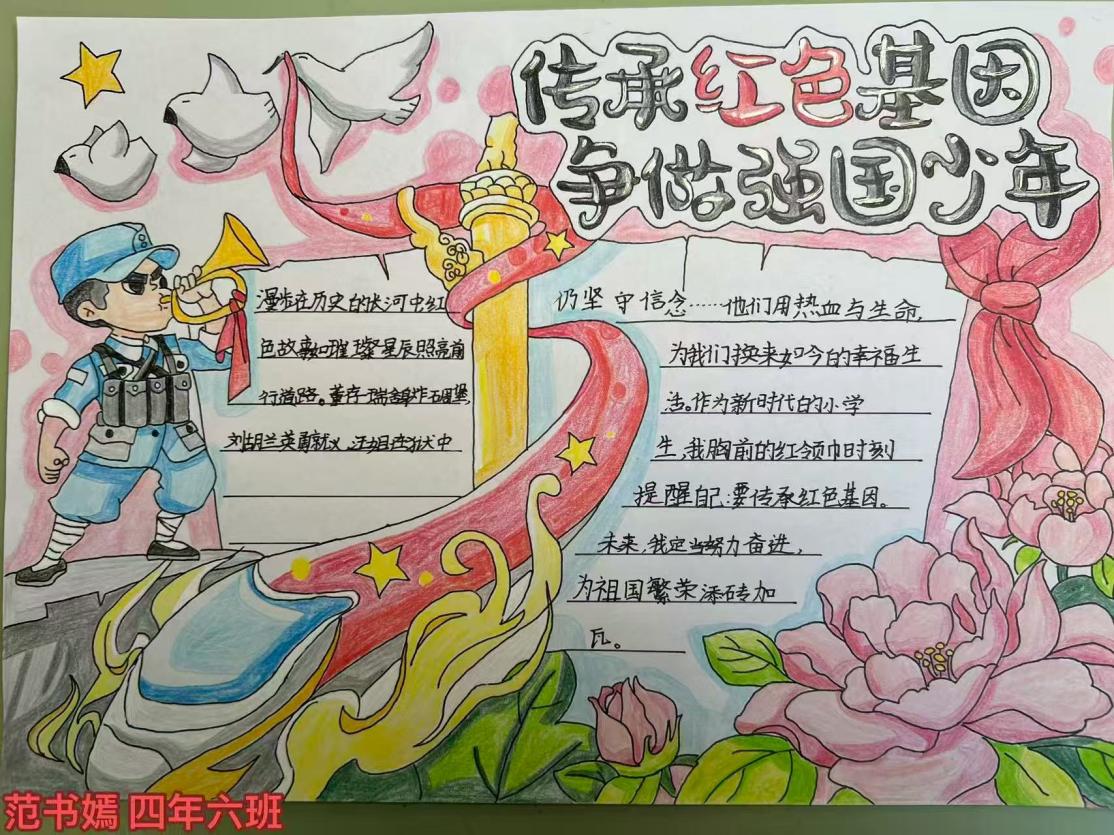 传承红色基因
争做强国少年
漫步在历史的长河中红
色故事如璀璨星辰照亮前
行道路。董存瑞舍身炸碉堡,
刘胡兰英勇就义,江姐在狱中
仍坚守信念……他们用热血与生命,
为我们换来如今的幸福生
活。作为新时代的小学
生,我胸前的红领巾时刻
提醒自己:要传承红色基因。
未来,我定当努力奋进,
为祖国繁荣添砖加
瓦。
范书嫣 四年六班